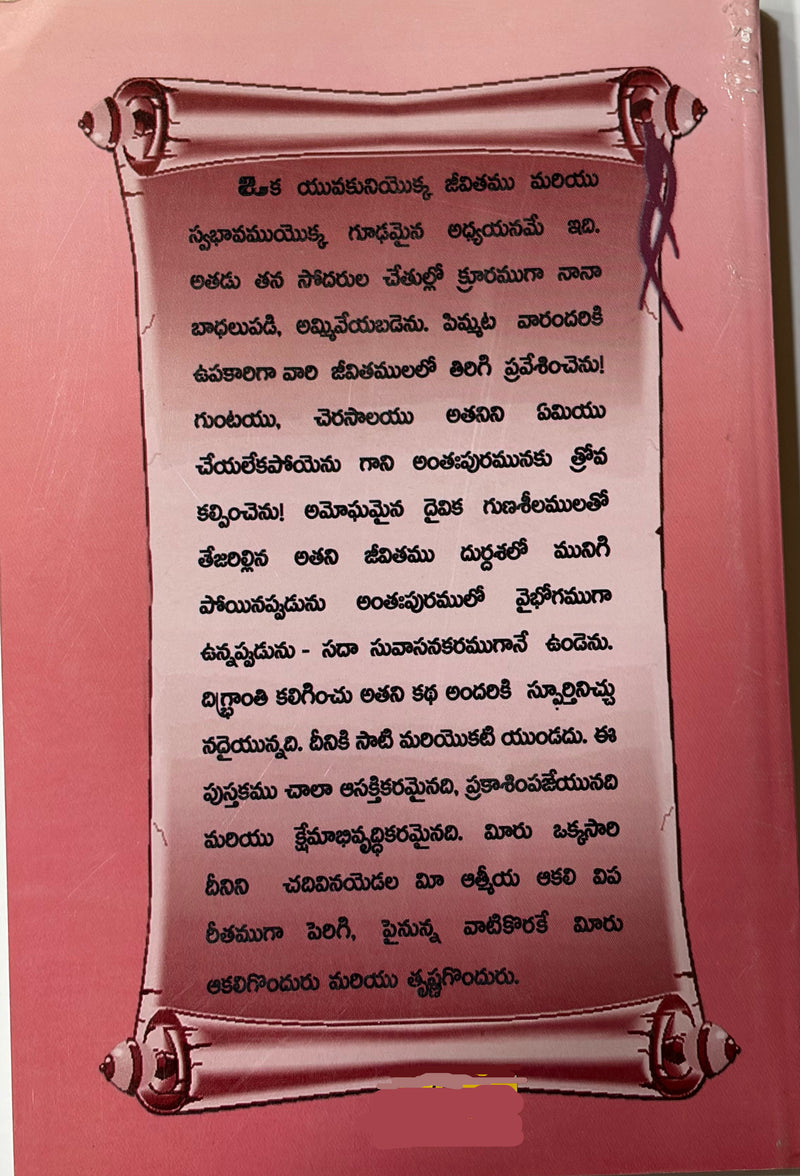 ఒక యువకునియొక్క జీవితము మరియు
స్వభావముయొక్క గూఢమైన అధ్యయనమే ఇది.
అతడు తన సోదరుల చేతుల్లో క్రూరముగా నానా
బాధలుపడి, అమ్మివేయబడెను. పిమ్మట వారందరికి
ఉపకారిగా వారి జీవితములలో తిరిగి ప్రవేశించెను!
గుంటయు, చెరసాలయు అతనిని ఏమియు
చేయలేకపోయెను గాని అంతఃపురమునకు త్రోవ
కల్పించెను! అమోఘమైన దైవిక గుణశీలములతో
తేజరిల్లిన అతని జీవితము దుర్దశలో మునిగి
పోయినప్పడును అంతఃపురములో వైభోగముగా
ఉన్నప్పడును - సదా సువాసనకరముగానే ఉండెను.
దిగ్భ్రాంతి కలిగించు అతని కథ అందరికి స్ఫూర్తినిచ్చు
నదైయున్నది. దీనికి సాటి మరియొకటి యుండదు. ఈ
పుస్తకము చాలా ఆసక్తికరమైనది, ప్రకాశింపజేయునది
మరియు క్షేమాభివృద్ధికరమైనది. మీరు ఒక్కసారి
దీనిని చదివినయెడల మీ ఆత్మీయ ఆకలి విప
రీతముగా పెరిగి, పైనున్న వాటికొరకే మీరు
ఆకలిగొందురు మరియు తృష్ణగొందురు.